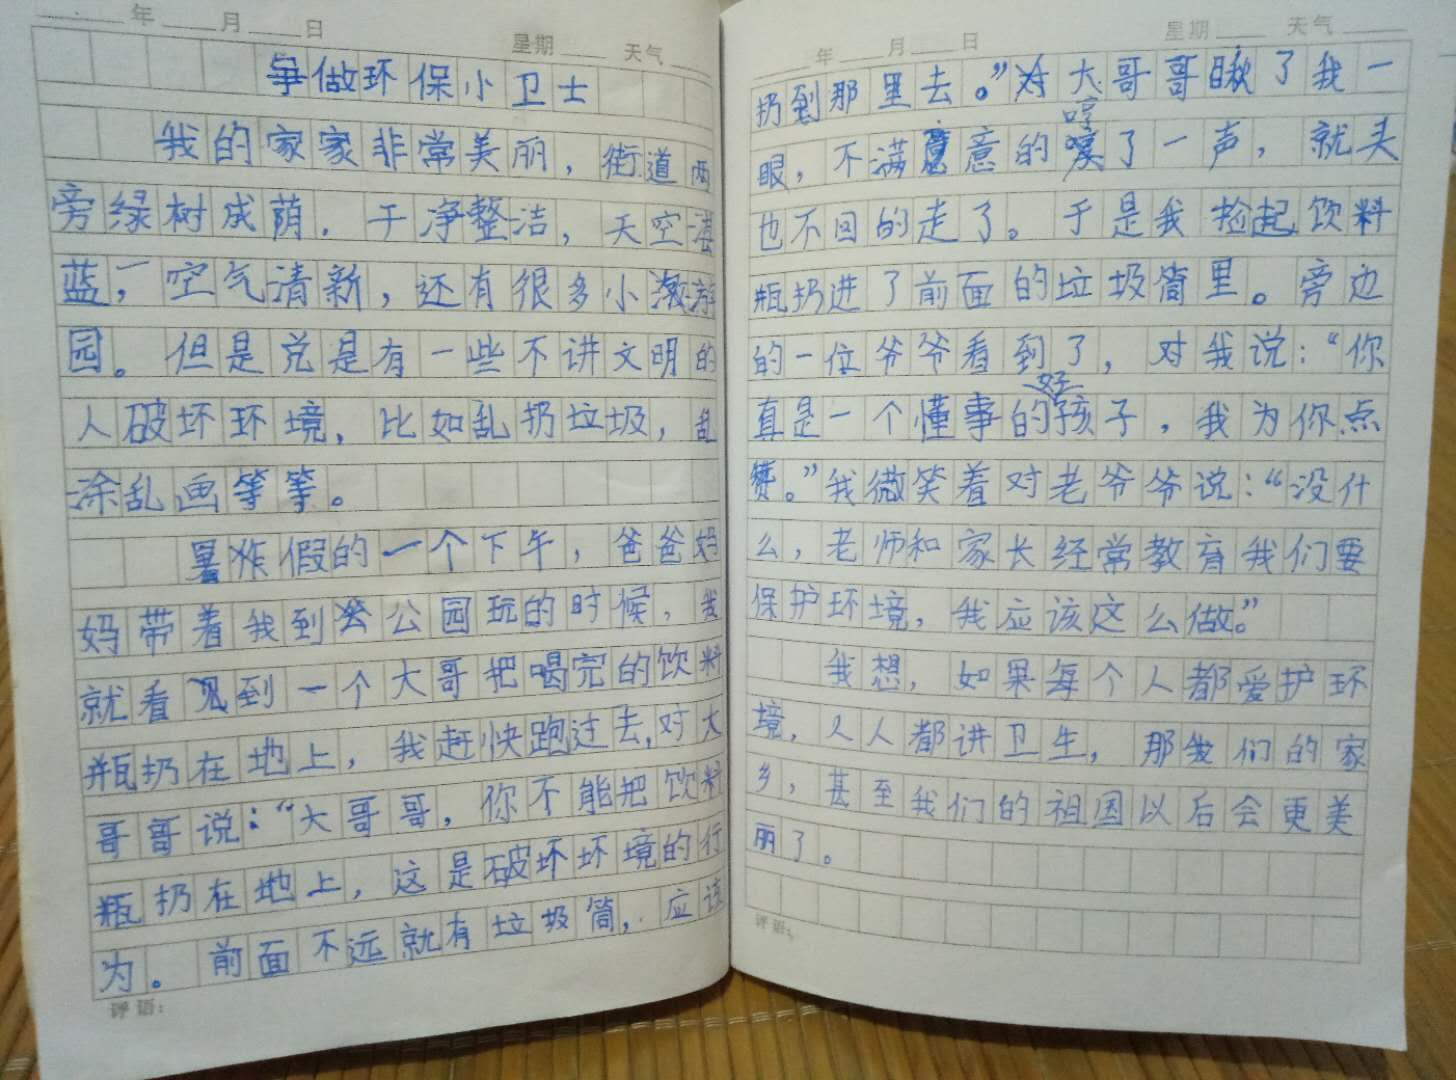 年 月 日
星期 天气
争做环保小卫士
我的家家非常美丽，街道两
旁绿树成荫．干净整洁，天空湛
蓝，空气清新，还有很多小游
园。但是总是有一些不讲文明的
人破坏环境，比如乱扔垃圾，乱
涂乱画等等。
暑假的一个下午，爸爸妈
妈带着我到公园玩的时候，我
就看见到一个大哥把喝完的饮料
瓶扔在地上，我赶快跑过去，对大
哥哥说：“大哥哥，你不能把饮料
瓶扔在地上，这是破坏环境的行
为。前面不远就有垃圾筒，应该
评语：
年 月 日
星期 天气
扔到那里去。”大哥哥瞅了我一
眼，不满意的哼了一声，就头
也不回的走了。于是我捡起饮料
瓶扔进了前面的垃圾筒里。旁边
的一位爷爷看到了，对我说：“你
真是一个懂事的好孩子，我为你点
赞。”我微笑着对老爷爷说：“没什
么，老师和家长经常教育我们要
保护环境，我应该这么做。”
我想，如果每个人都爱护环
境，人人都讲卫生，那我们的家
乡，甚至我们的祖国以后会更美
丽了。
评语：